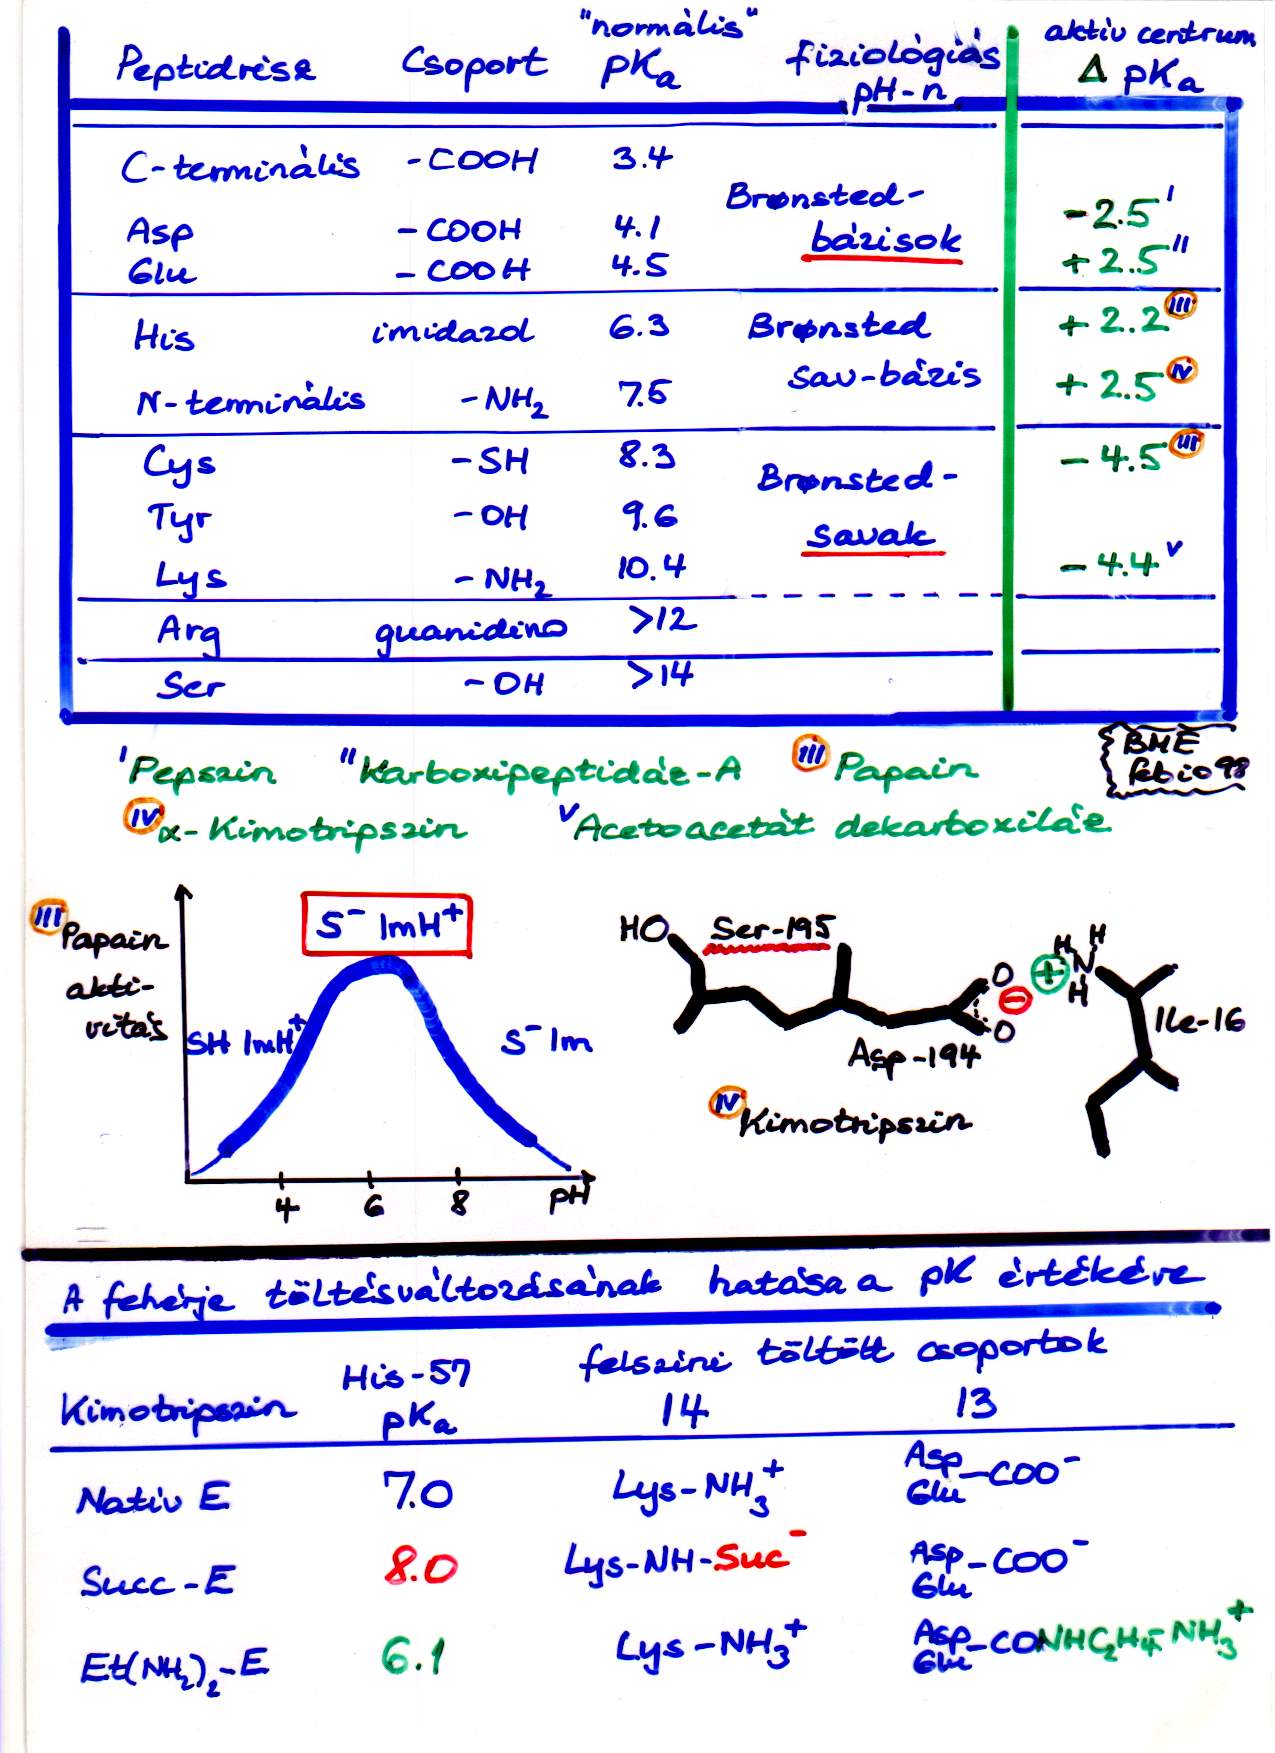 Peptidrész Csoport "normális" pKa fiziológiás pH-n aktív centrum Δ pKa
C-terminális -COOH 3.4
Asp -COOH 4.1 Brønsted- -2.5 I
Glu -COOH 4.5 bázisok +2.5 II
His imidazol 6.3 Brønsted +2.2 III
N-terminális -NH2 7.5 sav-bázis +2.5 IV
Cys -SH 8.3 Brønsted- -4.5 III
Tyr -OH 9.6 savak
Lys -NH2 10.4 -4.4 V
Arg guanidino >12
Ser -OH >14
I Pepszin II Karboxipeptidáz-A III Papain
BME
feb 10 98
IV α-Kimotripszin V Acetoacetát dekarboxiláz
III Papain
akti-
vitás
S⁻ ImH⁺
SH ImH⁺
S⁻ Im
4 6 8 pH
HO Ser-195
O
⊖
O
⊕
H H
N
H
Ile-16
Asp-194
IV Kimotripszin
A fehérje töltésváltozásának hatása a pK értékére
Kimotripszin His-57 pKa felszíni töltött csoportok
14 13
Nativ E 7.0 Lys-NH3⁺ Asp Glu -COO⁻
Succ-E 8.0 Lys-NH-Suc⁻ Asp Glu -COO⁻
Et(NH2)2-E 6.1 Lys-NH3⁺ Asp Glu -CONHC2H4-NH3⁺